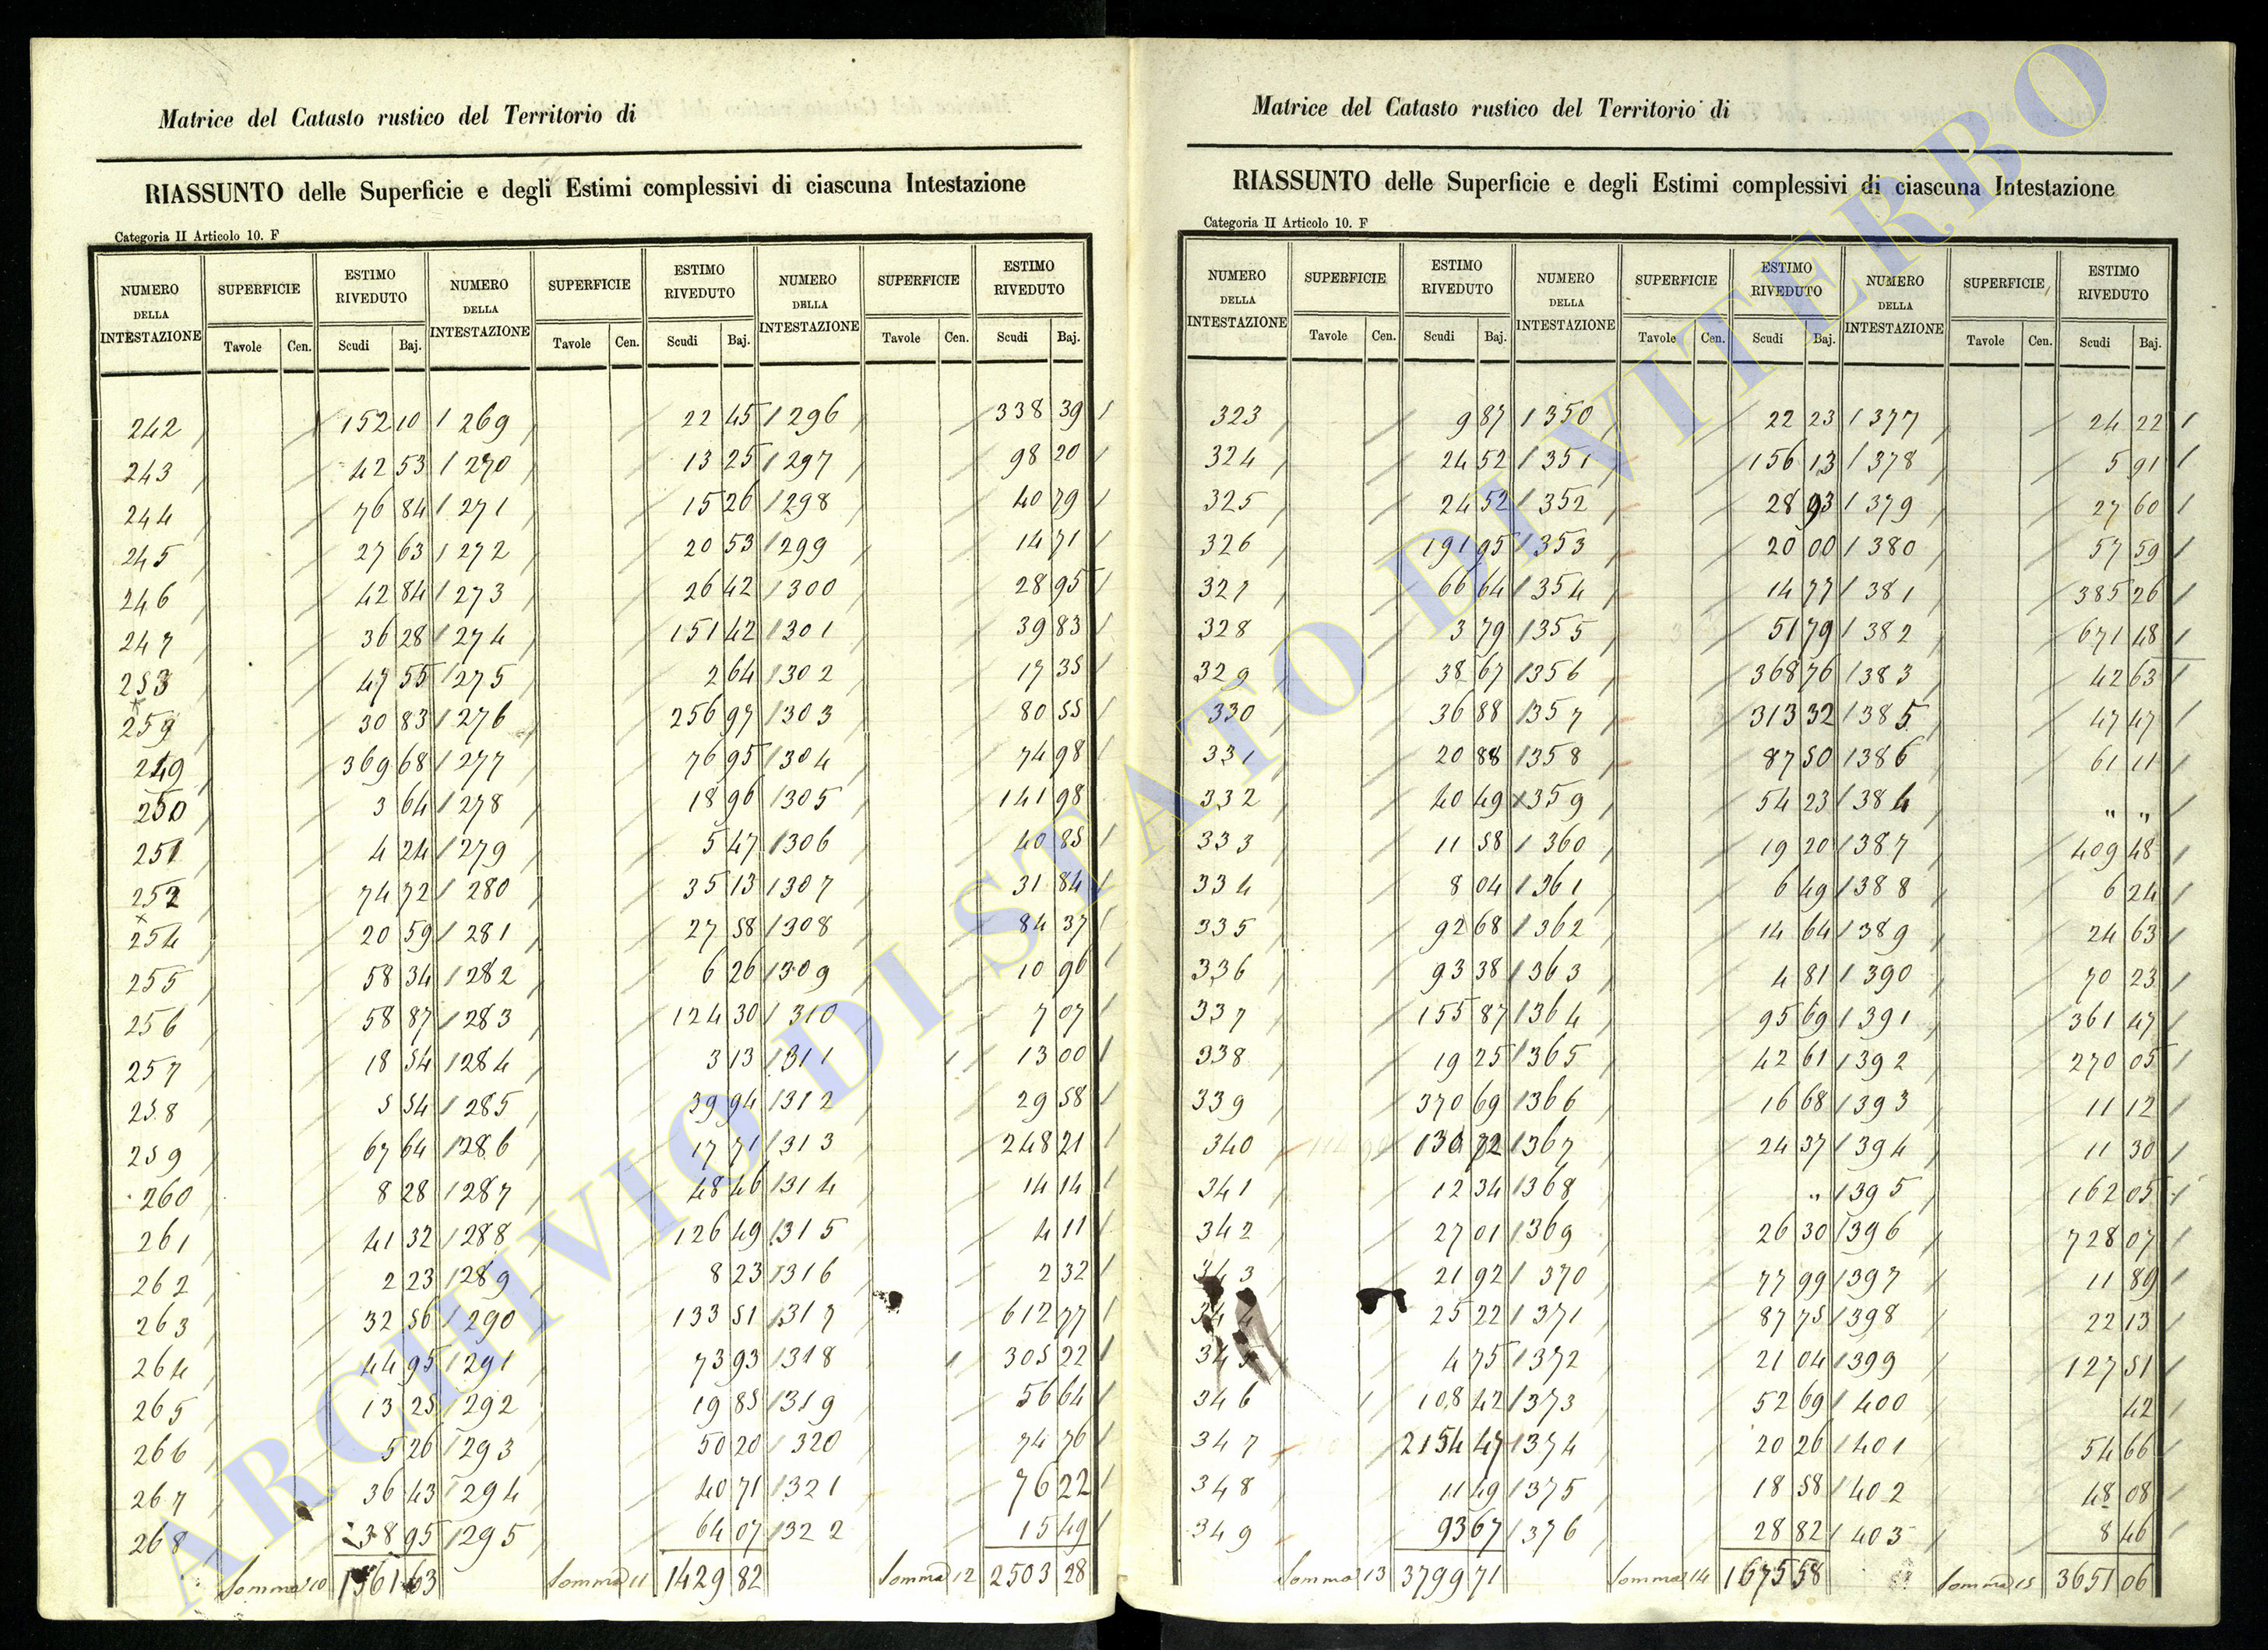 Matrice del Catasto rustico del Territorio di
RIASSUNTO delle Superficie e degli Estimi complessivi di ciascuna Intestazione
Categoria II Articolo 10. F
NUMERO DELLA INTESTAZIONE SUPERFICIE ESTIMO RIVEDUTO NUMERO DELLA INTESTAZIONE SUPERFICIE ESTIMO RIVEDUTO NUMERO DELLA INTESTAZIONE SUPERFICIE ESTIMO RIVEDUTO
Tavole Cen. Scudi Baj. Tavole Cen. Scudi Baj. Tavole Cen. Scudi Baj.
242 152 10 269 22 45 296 338 39
243 42 53 270 13 25 297 98 20
244 76 84 271 15 26 298 40 79
245 27 63 272 20 53 299 14 71
246 42 84 273 26 42 300 28 95
247 36 28 274 151 42 301 39 83
253 47 55 275 2 64 302 17 35
259 30 83 276 256 97 303 80 55
249 369 68 277 76 95 304 74 98
250 3 64 278 18 96 305 141 98
251 4 24 279 5 47 306 40 85
252 74 72 280 35 13 307 31 84
254 20 59 281 27 58 308 84 37
255 58 34 282 6 26 309 10 96
256 58 87 283 124 30 310 7 07
257 18 54 284 3 13 311 13 00
258 5 54 285 39 94 312 29 58
259 67 64 286 17 71 313 248 21
260 8 28 287 48 46 314 14 14
261 41 32 288 126 49 315 4 11
262 2 23 289 8 23 316 2 32
263 32 56 290 133 51 317 612 77
264 44 95 291 73 93 318 305 22
265 13 25 292 19 85 319 56 64
266 5 26 293 50 20 320 74 76
267 36 43 294 40 71 321 76 22
268 38 95 295 64 07 322 15 49
Somma 10 1361 63 Somma 11 1429 82 Somma 12 2503 28
Matrice del Catasto rustico del Territorio di
RIASSUNTO delle Superficie e degli Estimi complessivi di ciascuna Intestazione
Categoria II Articolo 10. F
NUMERO DELLA INTESTAZIONE SUPERFICIE ESTIMO RIVEDUTO NUMERO DELLA INTESTAZIONE SUPERFICIE ESTIMO RIVEDUTO NUMERO DELLA INTESTAZIONE SUPERFICIE ESTIMO RIVEDUTO
Tavole Cen. Scudi Baj. Tavole Cen. Scudi Baj. Tavole Cen. Scudi Baj.
323 9 87 350 22 23 377 24 22
324 24 52 351 156 13 378 5 91
325 24 52 352 28 93 379 27 60
326 191 95 353 20 00 380 57 59
327 66 64 354 14 77 381 385 26
328 3 79 355 51 79 382 671 48
329 38 67 356 368 76 383 42 63
330 36 88 357 313 32 385 47 47
331 20 88 358 87 50 386 61 11
332 40 49 359 54 23 384 " "
333 11 58 360 19 20 387 409 48
334 8 04 361 6 49 388 6 24
335 92 68 362 14 64 389 24 63
336 93 38 363 4 81 390 70 23
337 155 87 364 95 69 391 361 47
338 19 25 365 42 61 392 270 05
339 370 69 366 16 68 393 11 12
340 130 72 367 24 37 394 11 30
341 12 34 368 " 395 162 05
342 27 01 369 26 30 396 728 07
343 21 92 370 77 99 397 11 89
344 25 22 371 87 75 398 22 13
345 4 75 372 21 04 399 127 51
346 108 42 373 52 69 400 42
347 2154 47 374 20 26 401 54 66
348 11 49 375 18 58 402 48 08
349 93 67 376 28 82 403 8 46
Somma 13 3799 71 Somma 14 1675 58 Somma 15 3651 06
ARCHIVIO DI STATO DI VITERBO